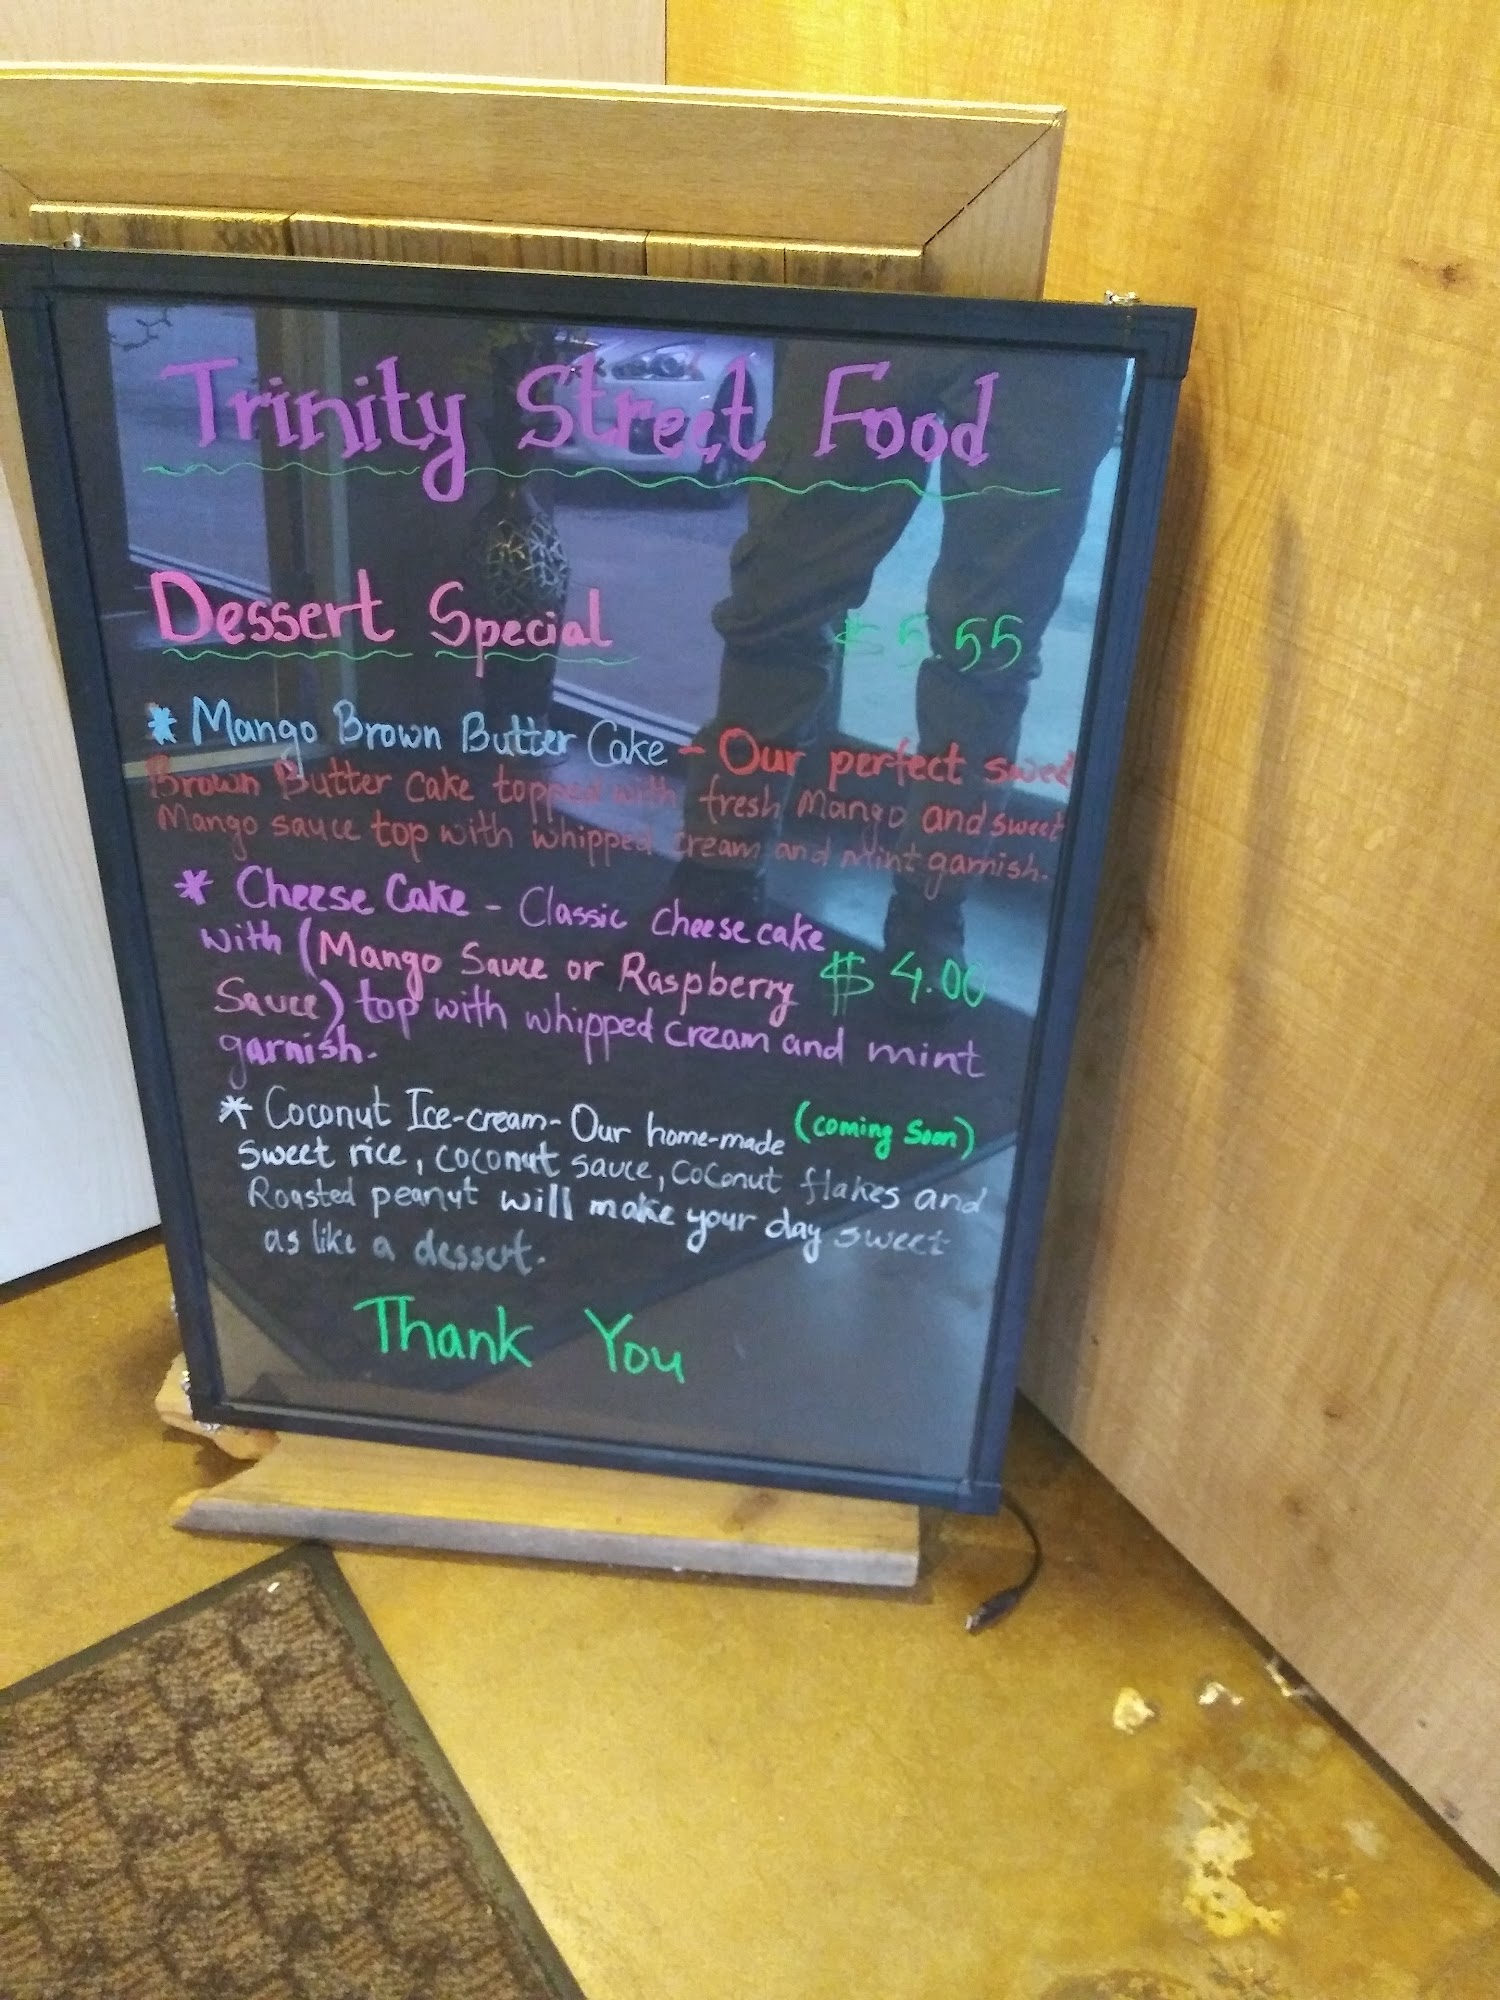 Trinity Street Food
Dessert Special $5.55
* Mango Brown Butter Cake - Our perfect sweet
Brown Butter cake topped with fresh Mango and sweet
Mango sauce top with whipped cream and Mint garnish.
* Cheese Cake - Classic cheese cake
with (Mango Sauce or Raspberry $4.00
Sauce) top with whipped cream and mint
garnish.
* Coconut Ice-cream - Our home-made (coming Soon)
sweet rice, coconut sauce, CoConut flakes and
Roasted peanut will make your day sweet
as like a dessert.
Thank You